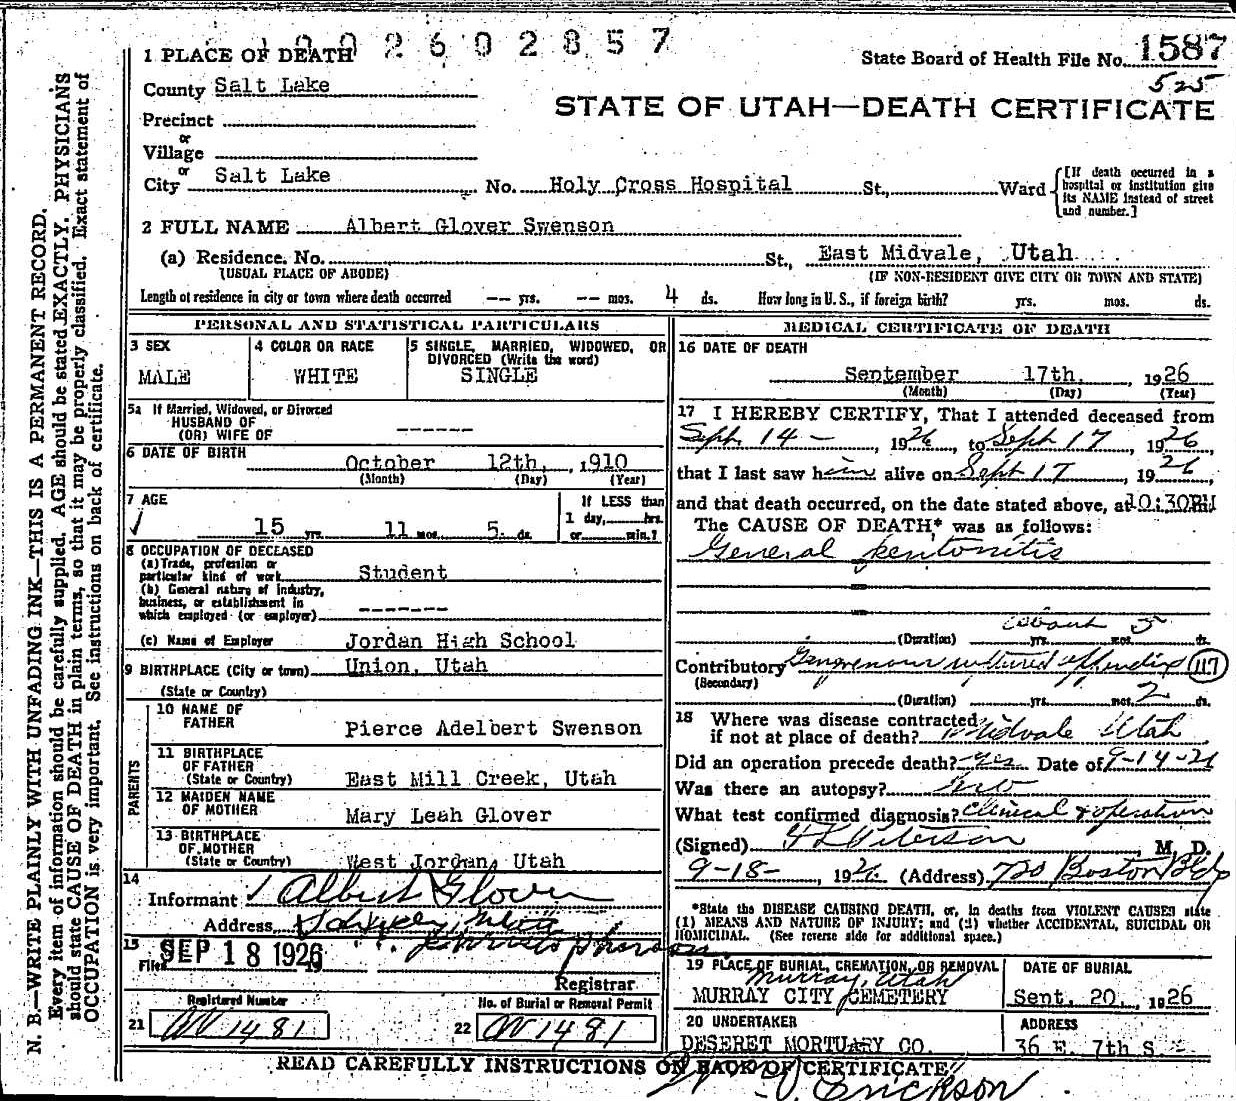 1002602857
1 PLACE OF DEATH
State Board of Health File No. 1587
525
County Salt Lake
STATE OF UTAH—DEATH CERTIFICATE
Precinct
or
Village
or
City Salt Lake No. Holy Cross Hospital St., Ward
[If death occurred in a hospital or institution give its NAME instead of street and number.]
2 FULL NAME Albert Glover Swenson
(a) Residence. No. St., East Midvale, Utah
(USUAL PLACE OF ABODE) (IF NON-RESIDENT GIVE CITY OR TOWN AND STATE)
Length of residence in city or town where death occurred -- yrs. -- mos. 4 ds. How long in U. S., if foreign birth? yrs. mos. ds.
PERSONAL AND STATISTICAL PARTICULARS
3 SEX
MALE
4 COLOR OR RACE
WHITE
5 SINGLE, MARRIED, WIDOWED, OR
DIVORCED (Write the word)
SINGLE
5a If Married, Widowed, or Divorced
HUSBAND OF
(OR) WIFE OF ------
6 DATE OF BIRTH
October 12th, 1910
(Month) (Day) (Year)
7 AGE
15 yrs. 11 mos. 5 ds.
If LESS than
1 day, hrs.
or min.?
8 OCCUPATION OF DECEASED
(a) Trade, profession or
particular kind of work Student
(b) General nature of industry,
business, or establishment in
which employed (or employer) -------
(c) Name of Employer Jordan High School
9 BIRTHPLACE (City or town) Union, Utah
(State or Country)
PARENTS
10 NAME OF
FATHER Pierce Adelbert Swenson
11 BIRTHPLACE
OF FATHER
(State or Country) East Mill Creek, Utah
12 MAIDEN NAME
OF MOTHER Mary Leah Glover
13 BIRTHPLACE
OF MOTHER
(State or Country) West Jordan, Utah
14
Informant Albert Glover
Address
15
Filed SEP 18 1926 19
Registrar
Registered Number
21 1481
No. of Burial or Removal Permit
22 1481
MEDICAL CERTIFICATE OF DEATH
16 DATE OF DEATH
September 17th, 1926
(Month) (Day) (Year)
17 I HEREBY CERTIFY, That I attended deceased from
Sept. 14 - 1926, to Sept 17, 1926
that I last saw him alive on Sept 17, 1926,
and that death occurred, on the date stated above, at 10:30PM
The CAUSE OF DEATH* was as follows:
General peritonitis
about 5
(Duration) yrs. mos. ds.
Contributory Gangrenous ruptured appendix 117
(Secondary)
(Duration) yrs. mos. 2 ds.
18 Where was disease contracted
if not at place of death? Midvale Utah
Did an operation precede death? yes Date of 9-14-26
Was there an autopsy? no
What test confirmed diagnosis? Clinical & operation
(Signed) Peterson, M. D.
9-18-, 1926 (Address) 720 Boston Bldg
*State the DISEASE CAUSING DEATH, or, in deaths from VIOLENT CAUSES state
(1) MEANS AND NATURE OF INJURY; and (2) whether ACCIDENTAL, SUICIDAL OR
HOMICIDAL. (See reverse side for additional space.)
19 PLACE OF BURIAL, CREMATION, OR REMOVAL
Murray, Utah
MURRAY CITY CEMETERY
DATE OF BURIAL
Sept. 20, 1926
20 UNDERTAKER
DESERET MORTUARY CO.
ADDRESS
36 E. 7th S.
READ CAREFULLY INSTRUCTIONS ON BACK OF CERTIFICATE
Erickson
N. B.—WRITE PLAINLY WITH UNFADING INK—THIS IS A PERMANENT RECORD.
Every item of information should be carefully supplied. AGE should be stated EXACTLY. PHYSICIANS
should state CAUSE OF DEATH in plain terms, so that it may be properly classified. Exact statement of
OCCUPATION is very important. See instructions on back of certificate.